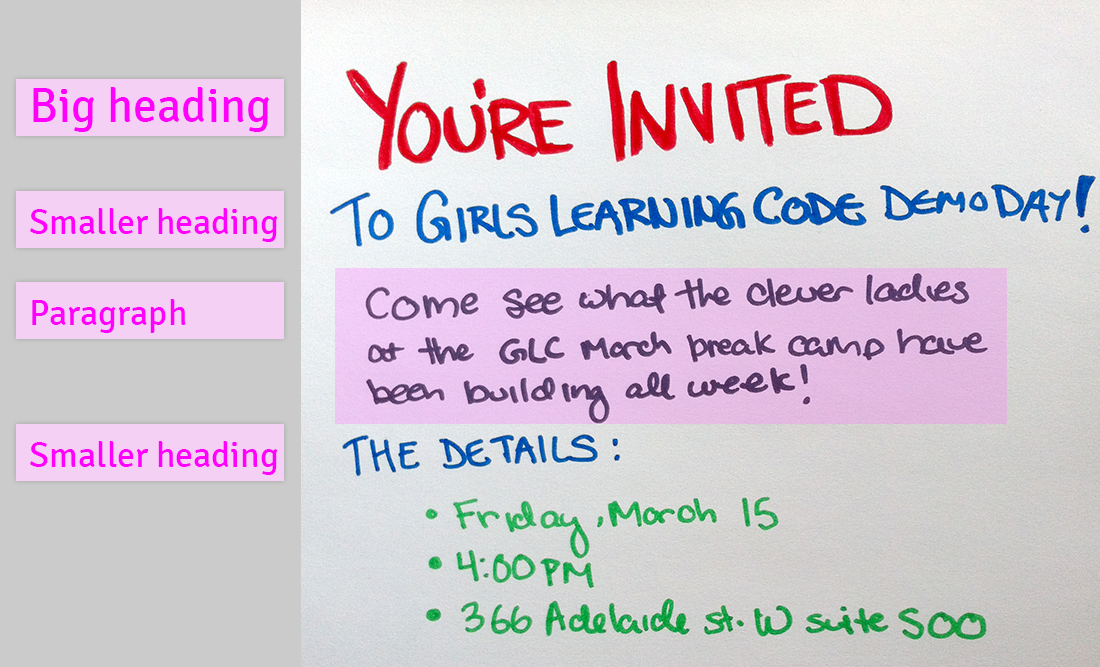 Big heading
YOU'RE INVITED
Smaller heading
TO GIRLS LEARNING CODE DEMO DAY!
Paragraph
Come see what the clever ladies
at the GLC March break camp have
been building all week!
Smaller heading
THE DETAILS:
• Friday, March 15
• 4:00 PM
• 366 Adelaide st. W suite 500